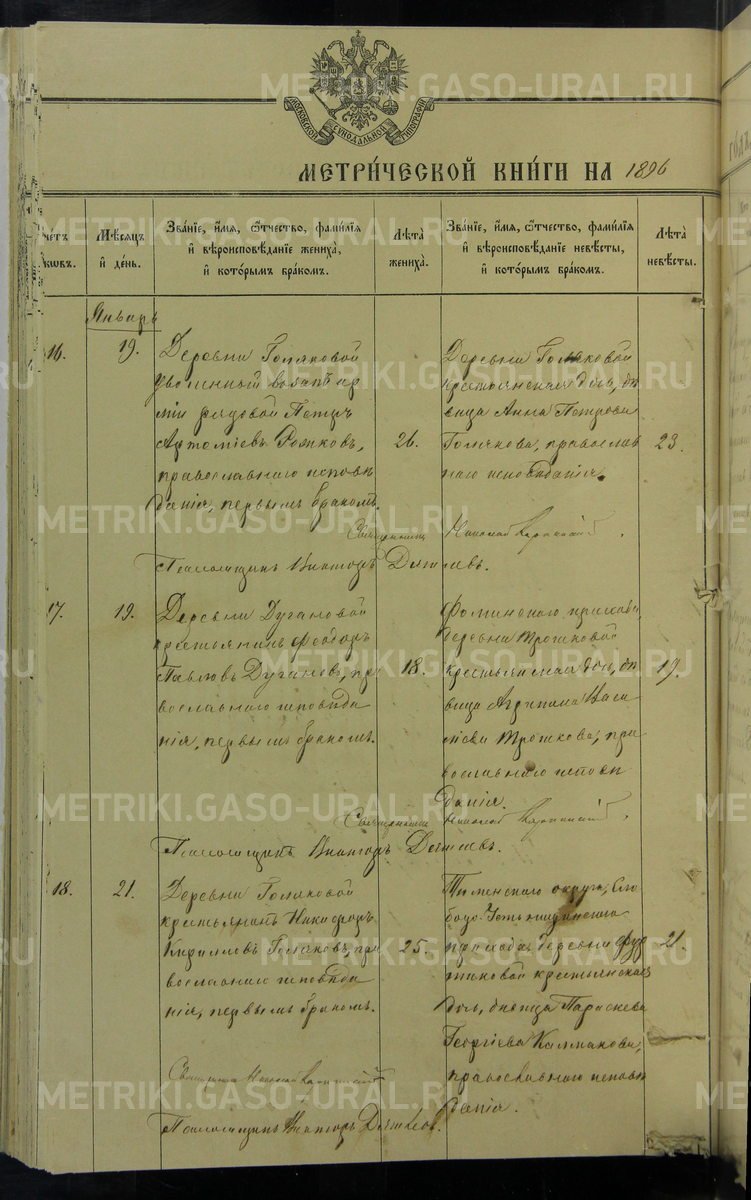 МОСКОВСКОЙ СѴНОДАЛЬНОЙ ТИПОГРАФІИ
МЕТРИ́ЧЕСКОЙ КНИ́ГИ НА 1896
Мѣсяцъ и́ де́нь.
Зва́нїе, и́мя, ѻ́тчество, фами́лїя и́ вѣроисповѣ́данїе жениха̀, и́ кото́рымъ бра́комъ.
Лѣта̀ жениха̀.
Зва́нїе, и́мя, ѻ́тчество, фами́лїя и́ вѣроисповѣ́данїе невѣ́сты, и́ кото́рымъ бра́комъ.
Лѣта̀ невѣ́сты.
Январь
16.
19.
Деревни Голяковой
уволенный въ запасъ ар
міи рядовой Петръ
Артоміевъ
православнаго исповѣ
данія, первымъ бракомъ.
26.
Деревни Голяковой
крестьянская дочь, дѣ
вица Анна Петрова
Голякова, православ
наго исповѣданія.
23.
Священникъ Николай
Псаломщикъ Викторъ
17.
19.
Деревни Дугановой
крестьянинъ Феодоръ
Павловъ Дугановъ, пра
вославнаго исповѣда
нія, первымъ бракомъ.
18.
Фоминскаго прихода,
деревни Трошковой
крестьянская дочь, дѣ
вица Агрипина Васи
ліева Трошкова, пра
вославнаго исповѣ
данія.
19.
Священникъ Николай
Псаломщикъ Викторъ
18.
21.
Деревни Голяковой
крестьянинъ Никифоръ
Кириловъ Голяковъ, пра
вославнаго исповѣда
нія, первымъ бракомъ.
25.
Тюменскаго округа, Сло
бодо-
прихода, деревни
крестьянская
дочь, дѣвица Параскева
Георгіева Калмакова,
православнаго исповѣ
данія.
21.
Священникъ Николай
Псаломщикъ Викторъ
METRIKI.GASO-URAL.RU